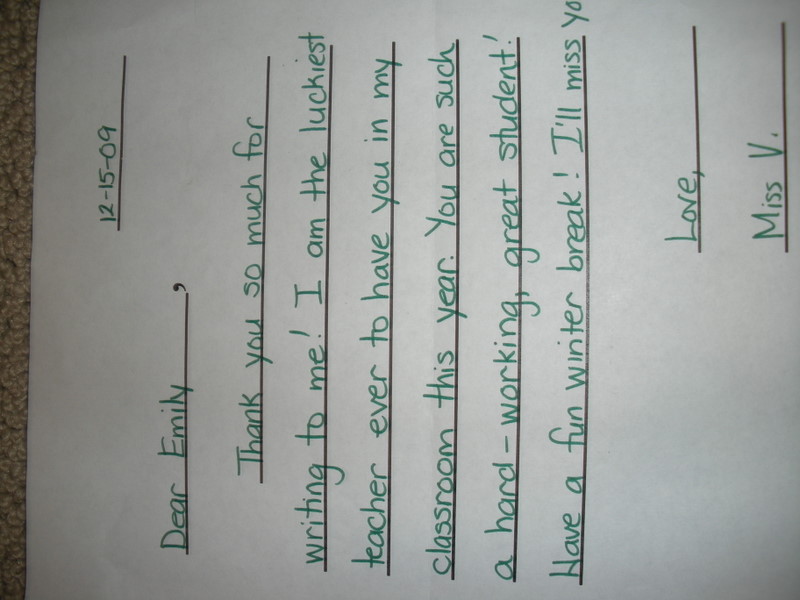 12-15-09
Dear Emily,
Thank you so much for
writing to me! I am the luckiest
teacher ever to have you in my
classroom this year. You are such
a hard-working, great student!
Have a fun winter break! I'll miss yo
Love,
Miss V.